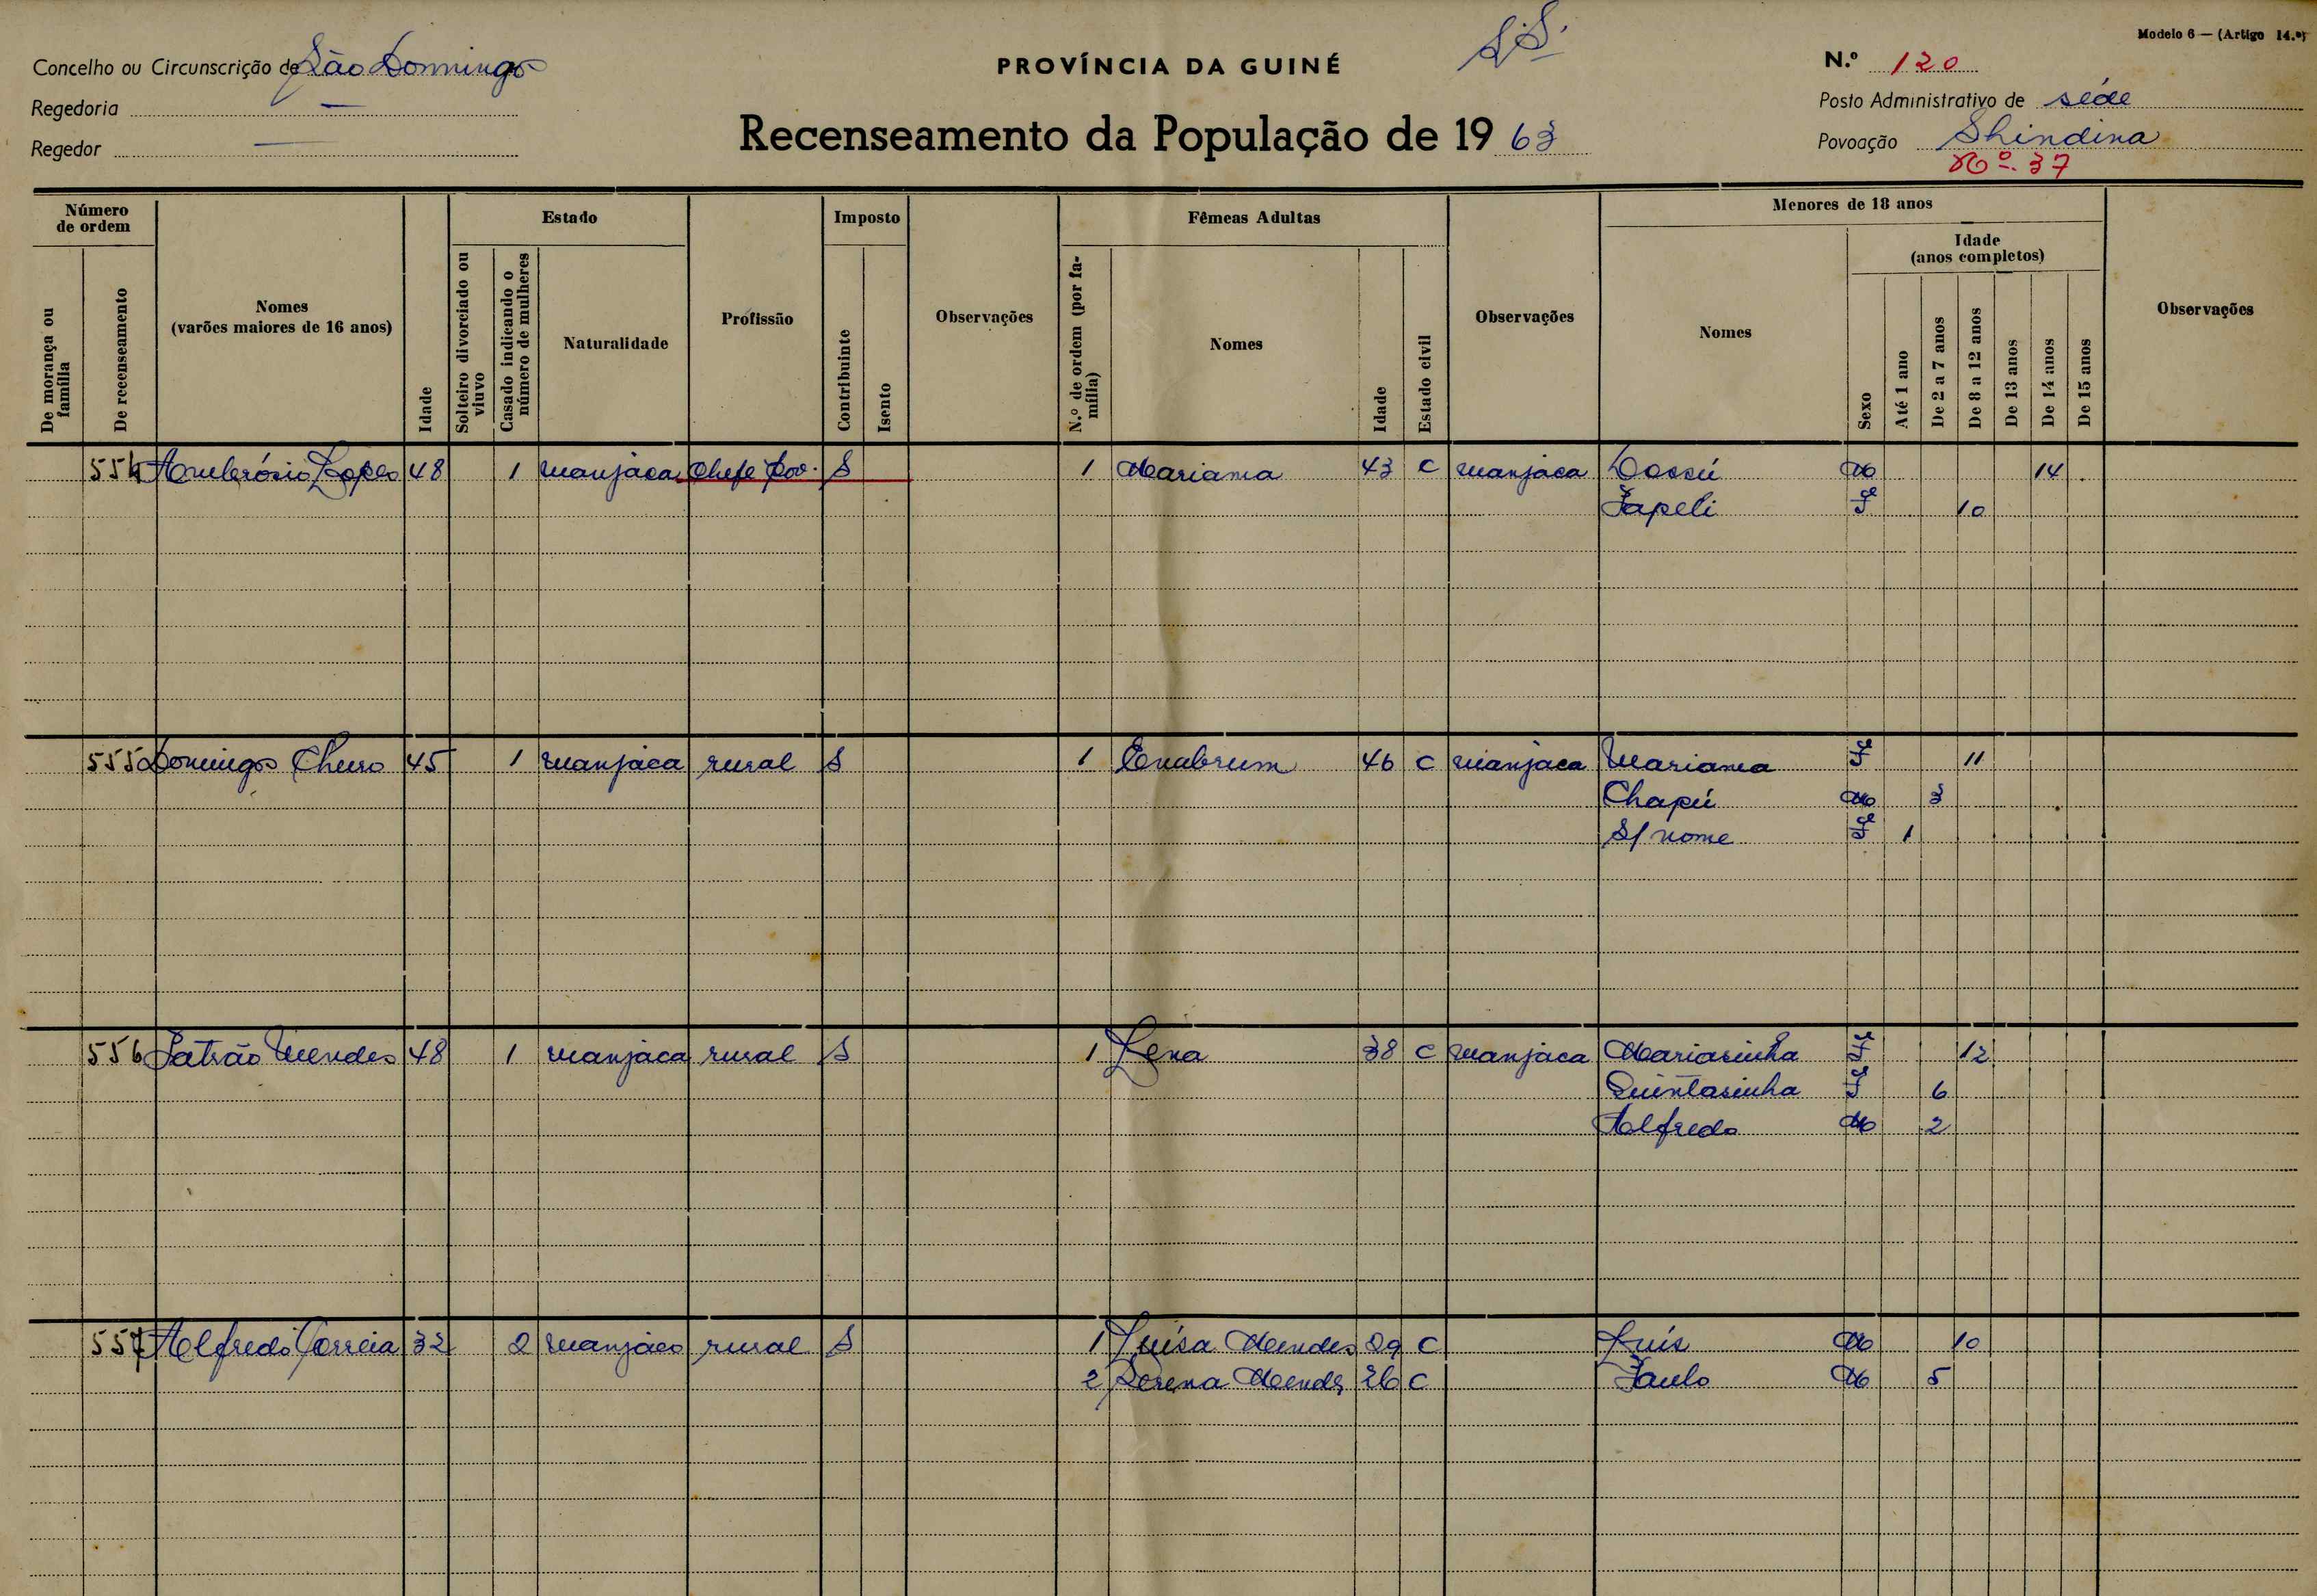 Modelo 6 — (Artigo 14.º)
Concelho ou Circunscrição de São Domingos
PROVÍNCIA DA GUINÉ
S.S.
N.º 120
Regedoria —
Posto Administrativo de séde
Regedor —
Recenseamento da População de 1963
Povoação Shindina
Nº. 37
Número de ordem
De morança ou família
De recenseamento
Nomes
(varões maiores de 16 anos)
Idade
Estado
Solteiro divorciado ou viuvo
Casado indicando o número de mulheres
Naturalidade
Profissão
Imposto
Contribuinte
Isento
Observações
Fêmeas Adultas
N.º de ordem (por família)
Nomes
Idade
Estado civil
Observações
Menores de 18 anos
Nomes
Idade
(anos completos)
Sexo
Até 1 ano
De 2 a 7 anos
De 8 a 12 anos
De 13 anos
De 14 anos
De 15 anos
Observações
554 Ambrósio Lopes 48 1 manjaca chefe pov. S 1 Mariama 43 C manjaca Dossú M 14
Japeli F 10
555 Domingos Churo 45 1 manjaca rural S 1 Enabrum 46 C manjaca Mariama F 11
Chapú M 3
S/ nome F 1
556 Patrão Mendes 48 1 manjaca rural S 1 Lena 38 C manjaca Mariasinha F 12
Quintasinha F 6
Alfredo M 2
557 Alfredo Correia 32 2 manjaco rural S 1 Luisa Mendes 29 C Luis M 10
2 Mends 26 C Paulo M 5